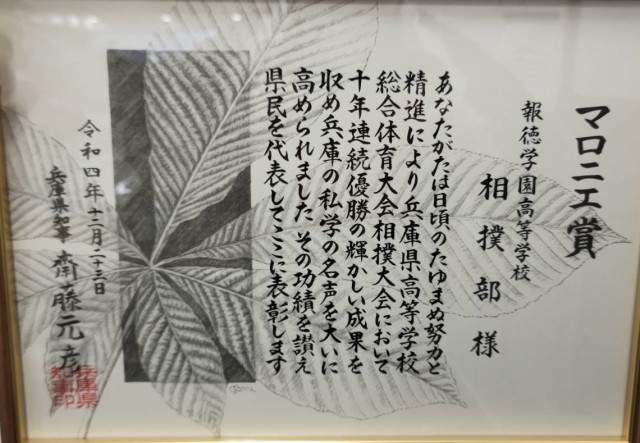 マロニエ賞
報徳学園高等学校
相撲部様
あなたがたは日頃のたゆまぬ努力と
精進により兵庫県高等学校
総合体育大会相撲大会において
十年連続優勝の輝かしい成果を
収め兵庫の私学の名声を大いに
高められました その功績を讃え
県民を代表してここに表彰します
令和四年十二月二十三日
兵庫県知事 齋藤元彦
兵庫県
知事印